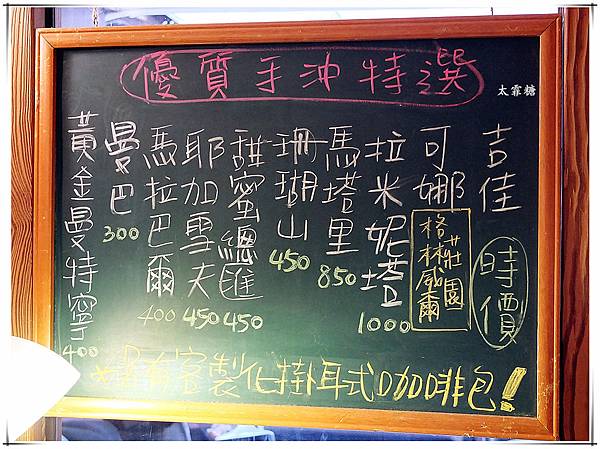 優質手沖特選
太霏糖
吉佳 時價
可娜 格林威爾莊園
拉米妮塔 1000
馬塔里 850
珊瑚山 450
甜蜜總匯 450
耶加雪夫 450
馬拉巴爾 400
曼巴 300
黃金曼特寧 400
*還有客製化掛耳式咖啡包!